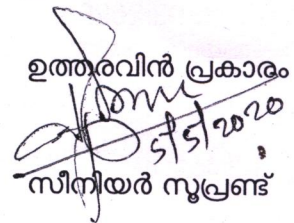 ഉത്തരവിൻ പ്രകാരം
5/5/2020
സീനിയർ സൂപ്രണ്ട്